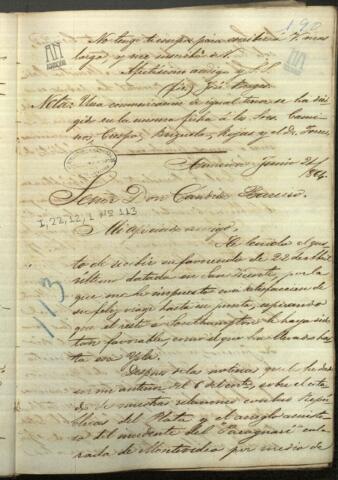 190
No tengo tiempo para escribir á V. mas
largo, y me suscribo de V.
Afectisimo amigo y S. S.
(fir) José Berges
Nota: Una comunicacion de igual tenor se ha diri-
gido en la misma fecha á los Sres. Cami-
nos, Crespo, Brizuela, Rojas y el Dr. Torres.
Asuncion Junio 21/864.
Señor Don Candido Bareiro.
I, 22, 12, 1 Nº 113
Mi apreciado amigo.
113
He tenido el gus-
to de recibir su favorecida de 22 de Abril
último datada en San Vicente, por la
que me he impuesto con satisfaccion de
su feliz viaje hasta su punto, esperando
que el resto a Southampton le haya sido
tan favorable, como el que ha llevado has-
ta esa Ysla.
Despues de las noticias que le he dado
en mi anterior del corriente, sobre el esta-
do de nuestras relaciones con las Repú-
blicas del Plata y el arreglo amisto-
so del incidente del "Paraguari" en la
rada de Montevideo por medio de